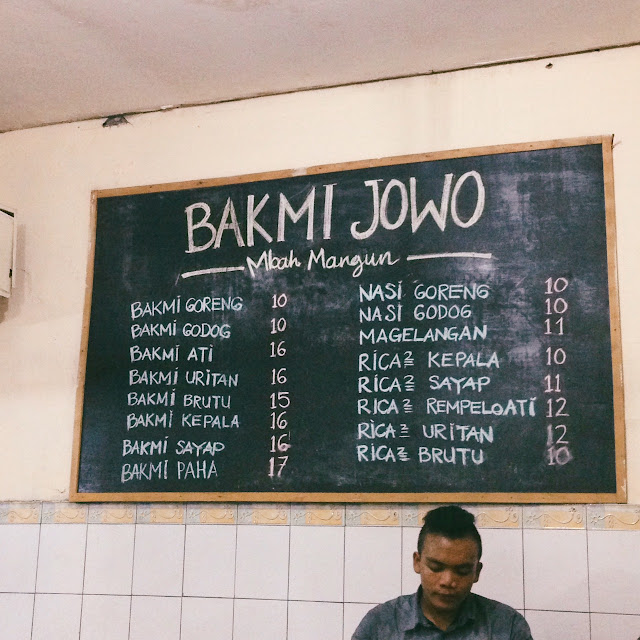 BAKMI JOWO
Mbah Mangun
BAKMI GORENG 10
BAKMI GODOG 10
BAKMI ATI 16
BAKMI URITAN 16
BAKMI BRUTU 15
BAKMI KEPALA 16
BAKMI SAYAP 16
BAKMI PAHA 17
NASI GORENG 10
NASI GODOG 10
MAGELANGAN 11
RICA2 KEPALA 10
RICA2 SAYAP 11
RICA2 REMPELOATI 12
RICA2 URITAN 12
RICA2 BRUTU 10